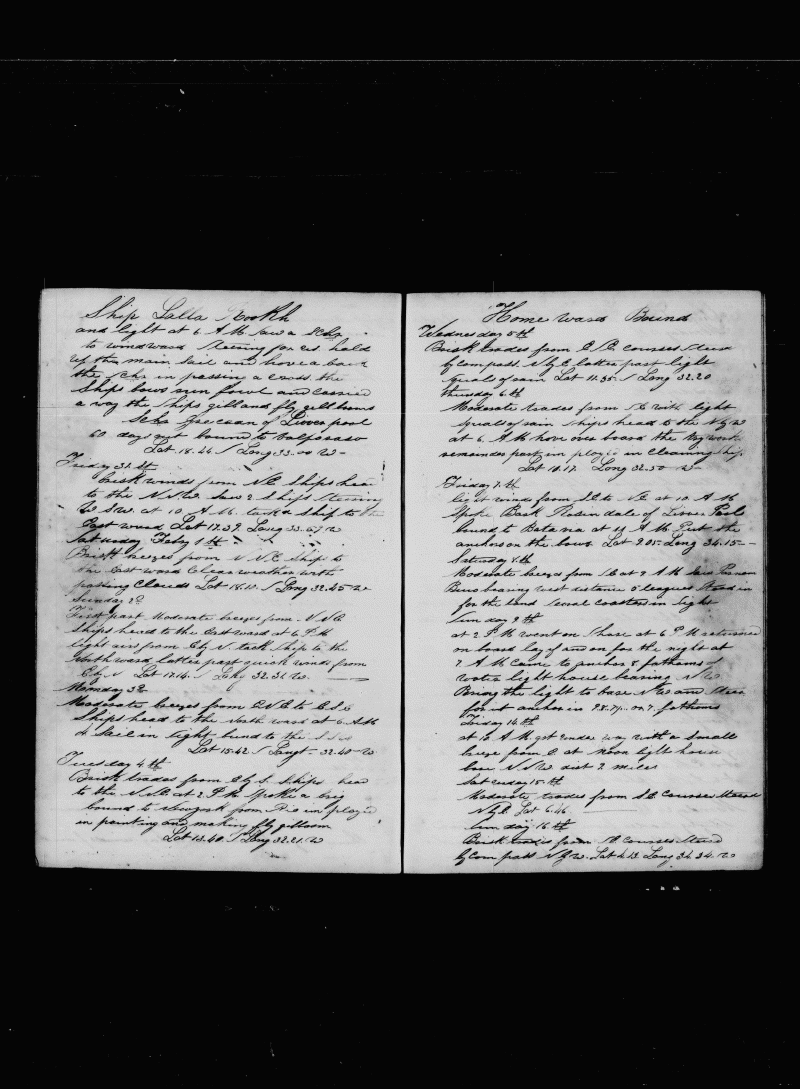 Ship Lalla Rookh
and light at 6 A M saw a Schr
to windward steering for us held
up the main sail and hove a back
the Schr in passing a cross the
Ships bows run fowl and carried
a way the Ships gib and fly gib boom
Schr Grecean of Liverpool
60 days out bound to Valparaso
Lat 18.44 S Long 33.00 W
Friday 31 st
brisk winds from NE Ships head
to the NNW saw 2 Ships steering
W SW. at 10 A M. tack Ship to the
East ward Lat 17.39. Long 33.57 W
Saturday Feby 1 st
Brisk breezes from N N E Ship to
the East ward Clear weather with
passing Clouds Lat 18.10. S Long 32.45 W
Sunday 2d
First part Moderate breezes from N N E
Ships head to the East ward at 6 P M
light airs from E by N. tack Ship to the
North ward latter part quick winds from
E by N Lat 17.14. S Long 32.31 W.
Monday 3d
Moderate breezes from E N E to E S E
Ships head to the North ward at 6 A M
a Sail in light bound to the
Lat 15.42 S Longt 32.40 W
Tuesday 4 th
Brisk trades from E by S. Ships head
to the N N E at 2 P M Spoke a brig
bound to Newyork from Rio in ployed
in painting and making fly gibboom
Lat 13.40. S Long 32.21. W
Home ward Bound
Wednesday 5 th
Brisk trades from E S E courses steerd
by compass. N by E latter part light
squals of rain Lat 11.35. S Long 32.20
Thursday 6 th
Moderate trades from S E with light
squals of rain Ships head to the N by W
at 6. A M hove over board the try works
remainder part im ployed in cleaning Ship
Lat 10.17. Long 32.50 W
Friday 7. th
light winds from S E to N E at 10. A M
Spoke Bark Robin dale of Liver Pool
bound to Batavia at 11 A M Put the
anchors on the bows Lat 9.05. Long 34.15
Saturday 8. th
Moderate breezes from S E at 9 A M saw
bearing west distance 5 leagues Stood in
for the land several coasters in Sight
Sun day 9 th
at 2 P M went on Shore at 6 P M returned
on board lay of and on for the night at
7 A M Came to anchor 8 fathoms of
water light house bearing N W
Bring the light to bare N W and steer
for it anchor in 7 fathoms
Friday 14. th
at 10 A M got under way with a small
breeze from E. at Noon light house
bore N N W dist 2 miles
Saturday 15 th
Moderate trades from S E Courses steerd
N by E Lat 6.46
Sun day 16 th
Brisk trades from S E Courses Steerd
by Com pass N by W. Lat 4.13. Long 34.34. W